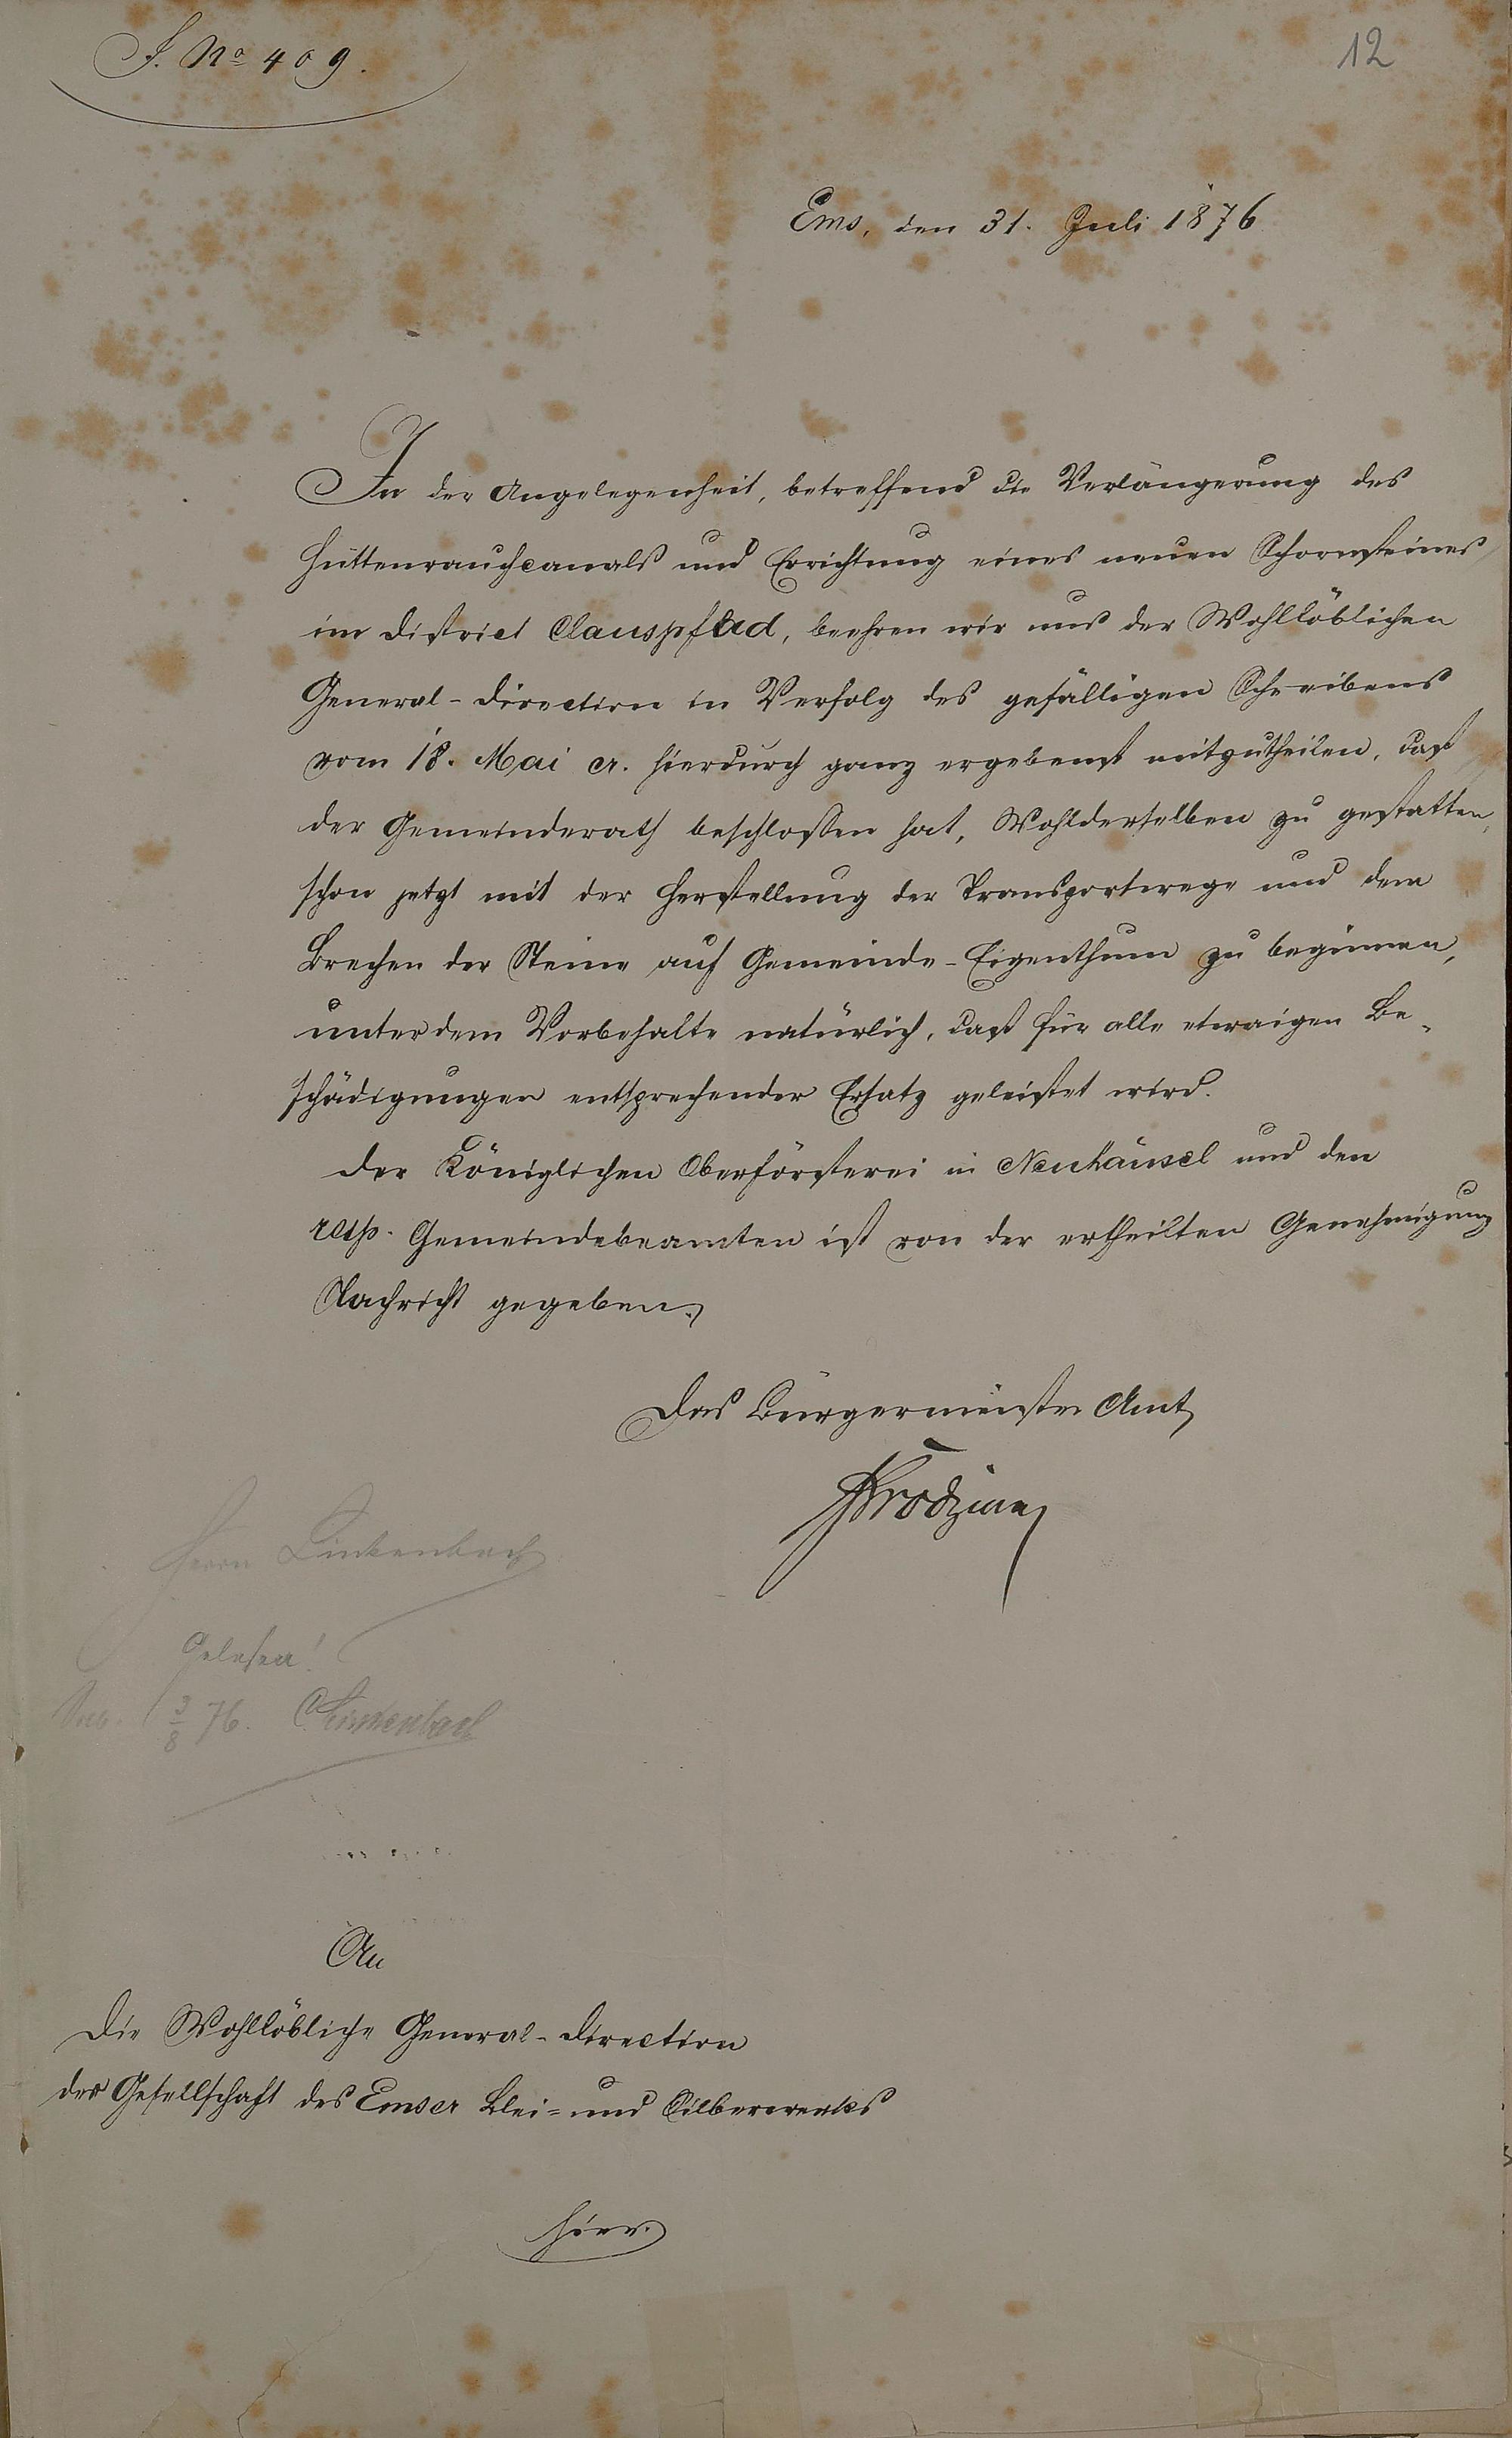 J. No 409.
12
Ems, den 31. Juli 1876
In der Angelegenheit, betreffend die Verlängerung des
Hüttenrauchcanals und Errichtung eines neuen Schornsteines
im District Clauspfad, beehren wir uns der Wohllöblichen
General-Direction in Verfolg des gefälligen Schreibens
vom 18. Mai cr. hierdurch ganz ergebenst mitzutheilen, daß
der Gemeinderath beschlossen hat, Wohlderselben zu gestatten,
schon jetzt mit der Herstellung der Transportwege und dem
Brechen der Steine auf Gemeinde-Eigenthum zu beginnen,
unter dem Vorbehalte natürlich, daß für alle etwaigen Be-
schädigungen entsprechender Ersatz geleistet wird.
Der Königlichen Oberförsterei in Neuhäusel und den
resp. Gemeindebeamten ist von der ertheilten Genehmigung
Nachricht gegeben.
Das Bürgermeister Amt
Herrn Linkenbach
Gelesen!
3/8 76. Linkenbach
An
Die Wohllöbliche General-Direction
der Gesellschaft des Emser Blei- und Silberwerks
hier.